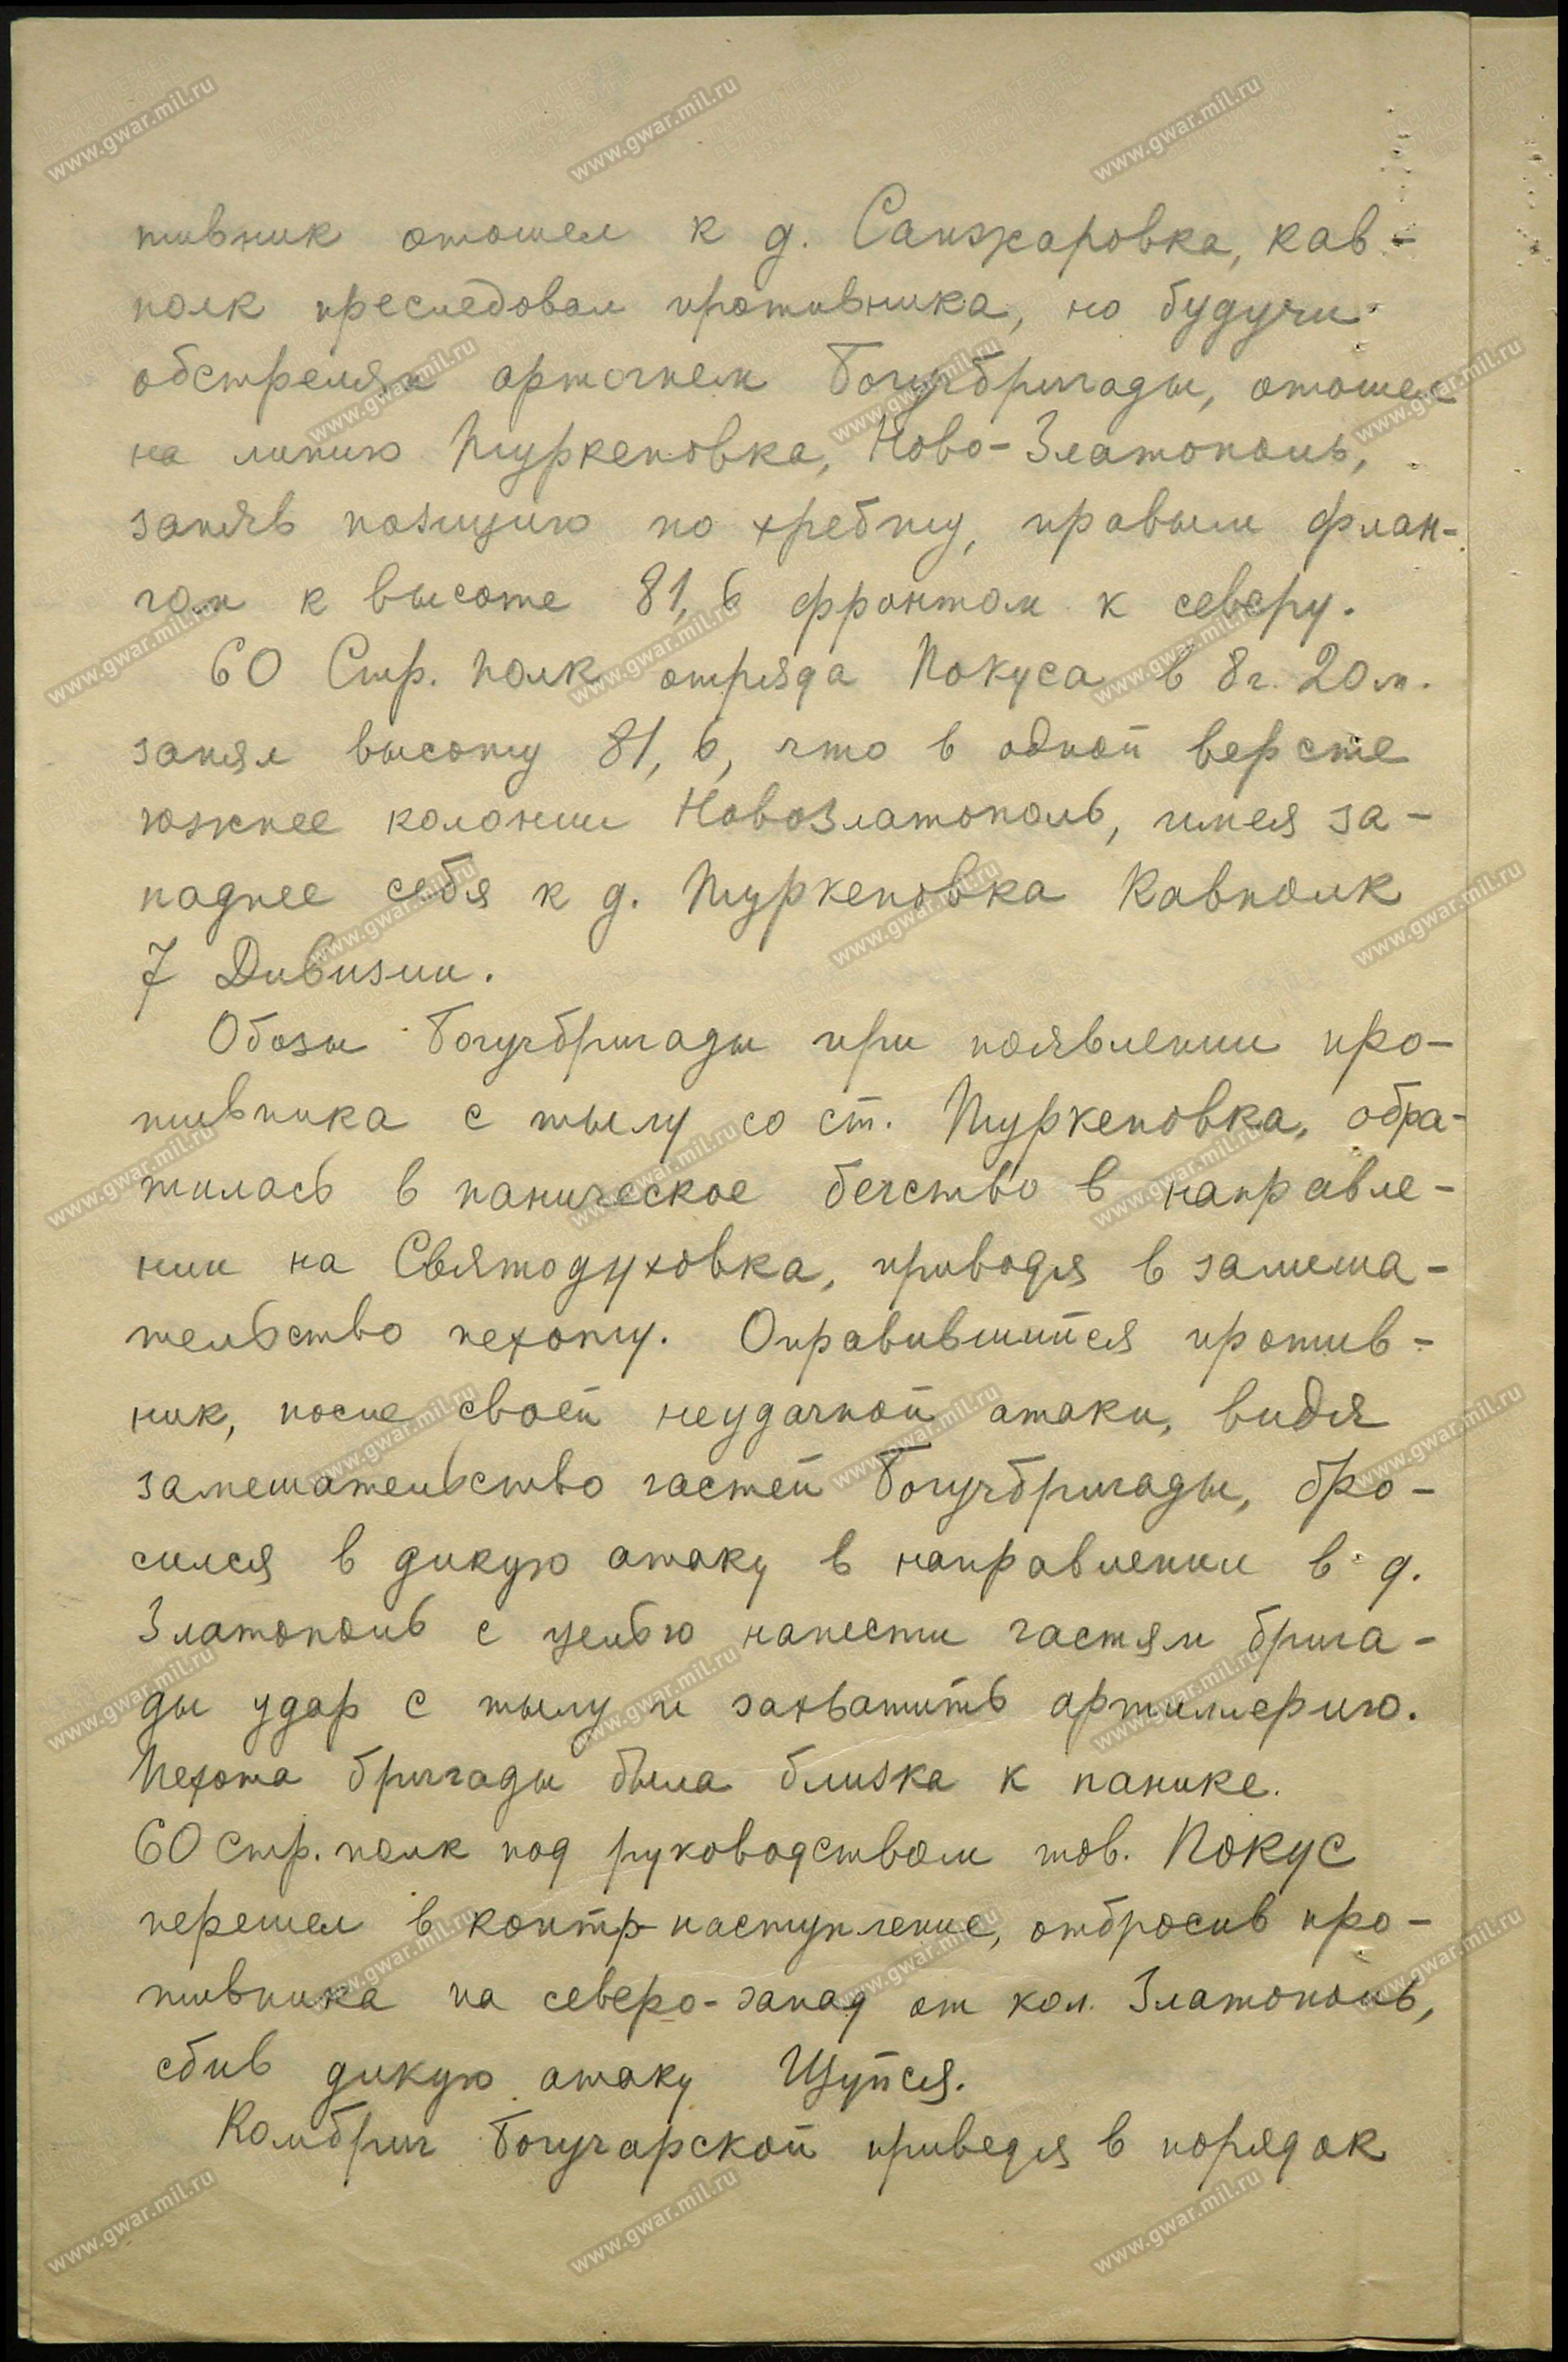 тивник отошел к д. Санжаровка, кав-
полк преследовал противника, но будучи
обстрелян артогнем Богучбригады, отошел
на линию Туркеновка, Ново-Златополь,
заняв позицию по хребту, правым флан-
гом к высоте 81,6 фронтом к северу.
60 Стр. полк отряда Покуса в 8 ч. 20 м.
занял высоту 81,6, что в одной версте
южнее колонии Новозлатополь, имея за-
паднее себя к д. Туркеновка Кавполк
7 Дивизии.
Обозы Богучбригады при появлении про-
тивника с тылу со ст. Туркеновка, обра-
тилась в паническое бегство в направле-
нии на Святодуховка, приводя в замеша-
тельство пехоту. Оправившийся против-
ник, после своей неудачной атаки, видя
замешательство частей Богучбригады, бро-
сился в дикую атаку в направлении в д.
Златополь с целью нанести частям брига-
ды удар с тылу и захватить артиллерию.
Пехота бригады была близка к панике.
60 Стр. полк под руководством тов. Покус
перешел в контр-наступление, отбросив про-
тивника на северо-запад от кол. Златополь,
сбив дикую атаку Щуйся.
Комбриг Богучарской приведя в порядок
www.gwar.mil.ru